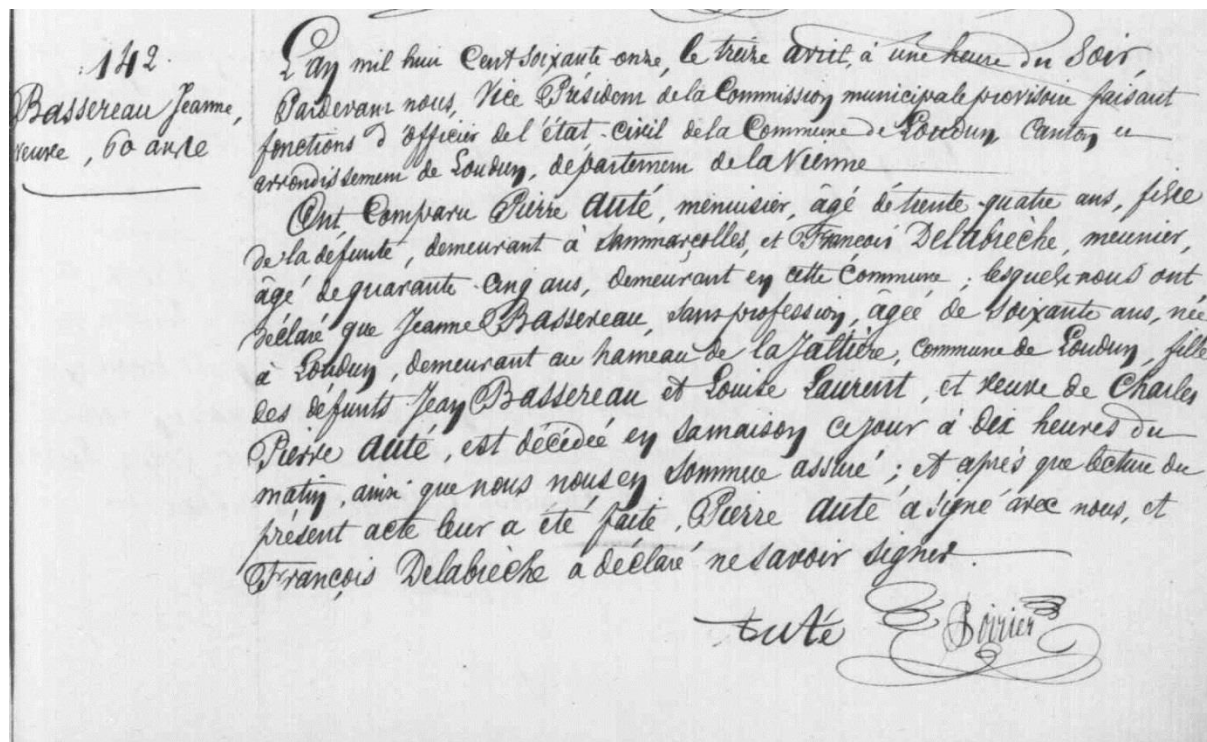 142.
Bassereau Jeanne,
veuve, 60 ans
L'an mil huit cent soixante-onze, le treize avril, à une heure du soir,
Pardevant nous, Vice Président de la Commission municipale provisoire faisant
fonctions d'officier de l'état-civil de la Commune de Loudun, Canton et
arrondissement de Loudun, département de la Vienne
Ont Comparu Pierre Auté, menuisier, âgé de trente-quatre ans, fils
de la défunte, demeurant à Sammarçolles, et François Delabièche, meunier,
âgé de quarante-cinq ans, demeurant en cette Commune ; lesquels nous ont
déclaré que Jeanne Bassereau, sans profession, âgée de soixante ans, née
à Loudun, demeurant au hameau de la Jaltière, commune de Loudun, fille
des défunts Jean Bassereau et Louise Laurent, et veuve de Charles
Pierre Auté, est décédée en sa maison ce jour à dix heures du
matin, ainsi que nous nous en sommes assuré ; et après que lecture du
présent acte leur a été faite, Pierre Auté a signé avec nous, et
François Delabièche a déclaré ne savoir signer.
Auté Poirier